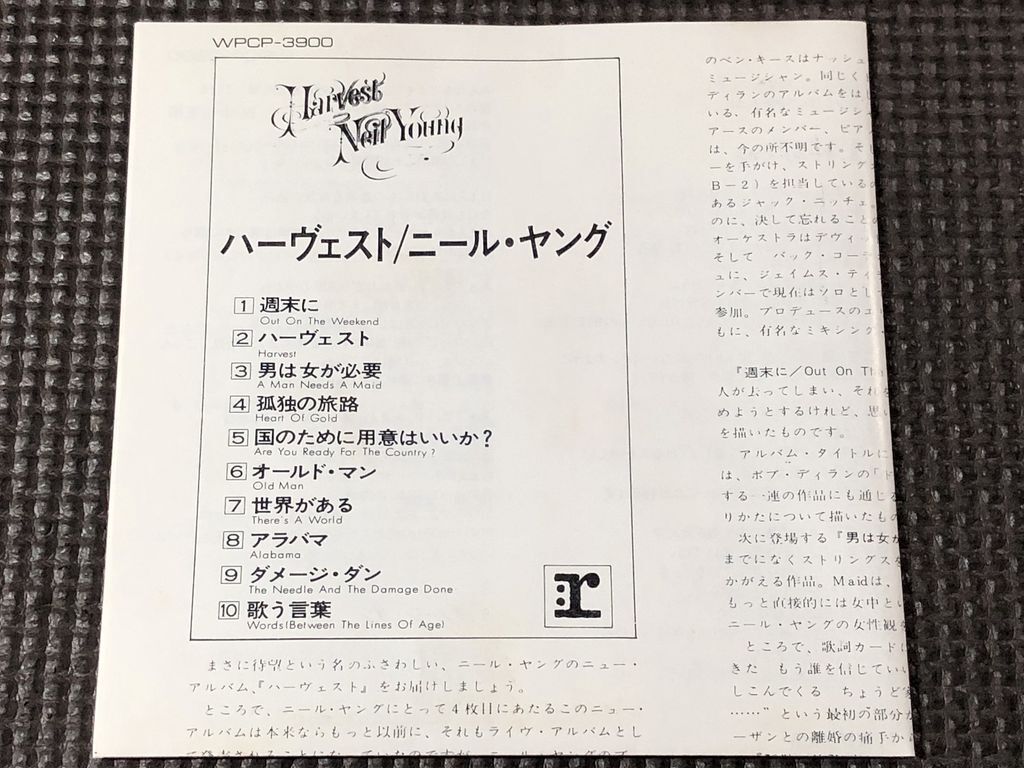 WPCP-3900
Harvest
Neil Young
ハーヴェスト/ニール・ヤング
1 週末に
Out On The Weekend
2 ハーヴェスト
Harvest
3 男は女が必要
A Man Needs A Maid
4 孤独の旅路
Heart Of Gold
5 国のために用意はいいか?
Are You Ready For The Country?
6 オールド・マン
Old Man
7 世界がある
There's A World
8 アラバマ
Alabama
9 ダメージ・ダン
The Needle And The Damage Done
10 歌う言葉
Words(Between The Lines Of Age)
r
まさに待望という名のふさわしい、ニール・ヤングのニュー・
アルバム、『ハーヴェスト』をお届けしましょう。
ところで、ニール・ヤングにとって4枚目にあたるこのニュー・
アルバムは本来ならもっと以前に、それもライヴ・アルバムとし
て発売されることになっていたのですが、ニール・ヤングのプ
のベン・キースはナッシュ
ミュージシャン。同じく
ディランのアルバムをは
いる、有名なミュージシ
アースのメンバー、ピア
は、今の所不明です。そ
ーを手がけ、ストリング
B-2)を担当している
あるジャック・ニッチェ
のに、決して忘れること
オーケストラはデヴィ
そして バック・コー
ュに、ジェイムス・テイ
ンバーで現在はソロとし
参加。プロデュースのエ
もに、有名なミキシング・
『週末に/Out On Th
人が去ってしまい、それ
めようとするけれど、思い
を描いたものです。
アルバム・タイトルに
は、ボブ・ディランの「ド
する一連の作品にも通じ
りかたについて描いたもの
次に登場する『男は女が
までになくストリングス
かがえる作品。Maidは、
もっと直接的には女中とい
ニール・ヤングの女性観を
ところで、歌詞カード
きた もう誰を信じていい
しこんでくる ちょうど
……"という最初の部分が
ーザンとの離婚の痛手か